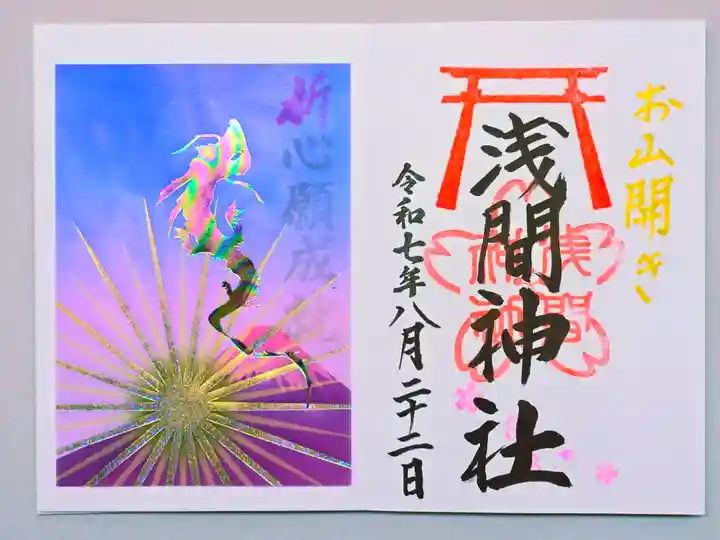 お山開き
浅間神社
令和七年八月二十二日
浅間
神社
祈心願成就